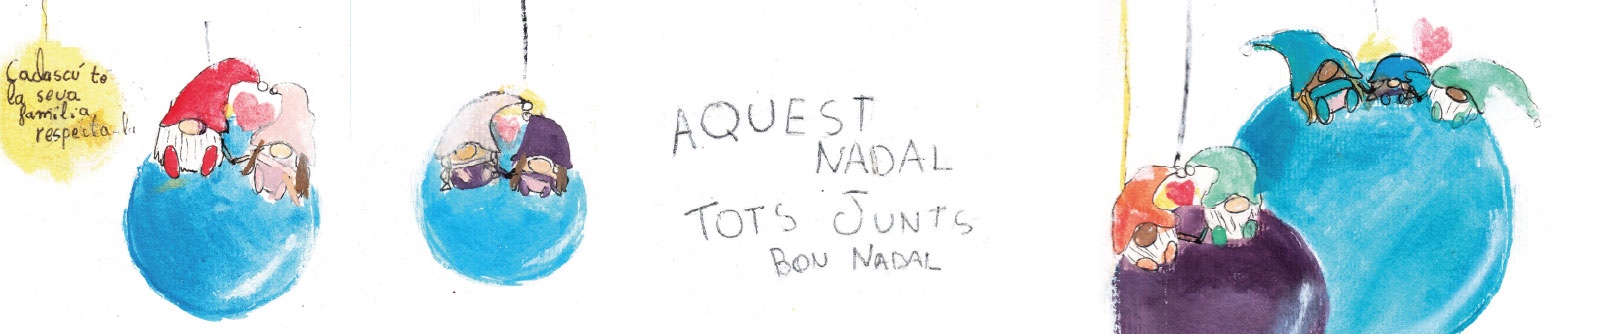 Cadascú té
la seva
família
respecta-la
AQUEST
NADAL
TOTS JUNTS
BON NADAL